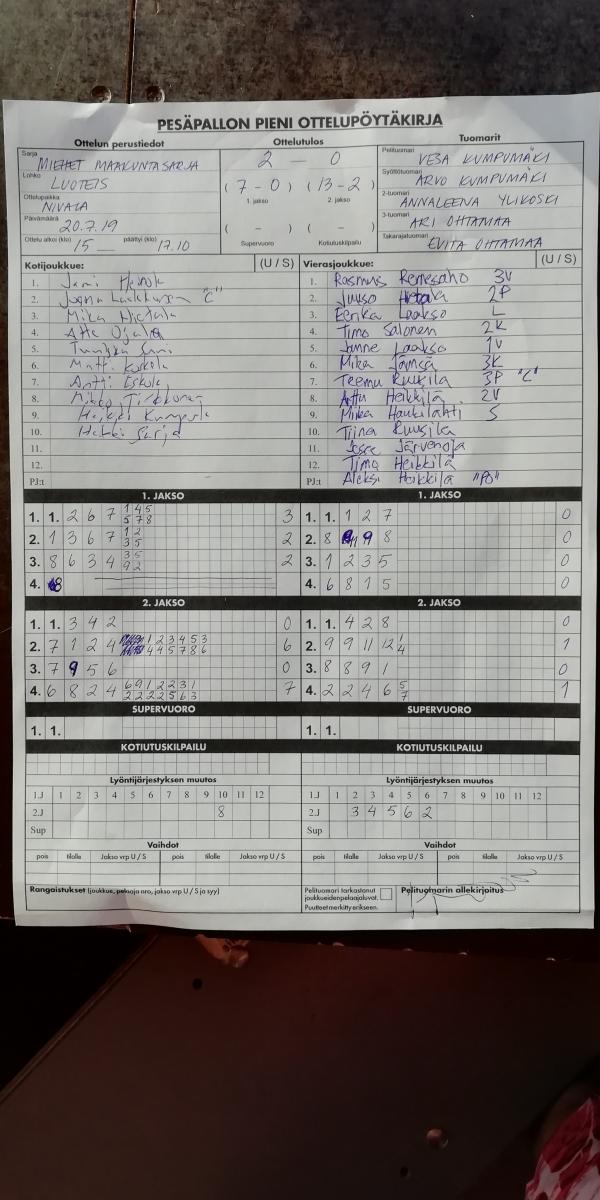 PESÄPALLON PIENI OTTELUPÖYTÄKIRJA
Ottelun perustiedot Ottelutulos Tuomarit
Sarja MIEHET MAAKUNTASARJA 2 – 0 Pelituomari VESA KUMPUMÄKI
Lohko LUOTEIS (7 – 0) (13 – 2) Syöttötuomari ARVO KUMPUMÄKI
Ottelupaikka NIVALA 1. jakso 2. jakso 2-tuomari ANNALEENA YLIKOSKI
Päivämäärä 20.7.19 ( – ) ( – ) 3-tuomari ARI OHTAMAA
Ottelu alkoi (klo) 15 päättyi (klo) 17.10 Supervuoro Kotiutuskilpailu Takarajatuomari EVITA OHTAMAA
Kotijoukkue: (U / S) Vierasjoukkue: (U / S)
1. Jami 1. Rasmus 3V
2. "C" 2. Juuso 2P
3. Mika Hietala 3. Eerika Laakso L
4. Atte Ojala 4. Timo Salonen 2K
5. 5. Janne Laakso 1V
6. Matti 6. Mika Jämsä 3K
7. Antti Eskola 7. Teemu Ruusila 3P "C"
8. Mikko 8. Arttu Heikkilä 2V
9. Heikki 9. Miika Haukilahti S
10. 10. Tiina Ruusila
11. 11. Jesse Järvenoja
12. 12. Timo Heikkilä
PJ:t PJ:t Aleksi Heikkilä "PJ"
1. JAKSO 1. JAKSO
1. 1. 2 6 7 1 4 5 3 1. 1. 1 2 7 0
5 7 8
2. 1 3 6 7 1 2 2 2. 8 9 8 0
3 5
3. 8 6 3 4 3 5 2 3. 1 2 3 5 0
9 2
4. 8 4. 6 8 1 5 0
2. JAKSO 2. JAKSO
1. 1. 3 4 2 0 1. 1. 4 2 8 0
2. 7 1 2 4 1 2 3 4 5 3 6 2. 9 9 11 12 1 1
4 4 5 7 8 6 4
3. 7 9 5 6 0 3. 8 8 9 1 0
4. 6 8 2 4 6 9 1 2 2 3 1 7 4. 2 2 4 6 5 1
2 2 2 2 5 6 3 7
SUPERVUORO SUPERVUORO
1. 1. 1. 1.
KOTIUTUSKILPAILU KOTIUTUSKILPAILU
Lyöntijärjestyksen muutos Lyöntijärjestyksen muutos
1.J 1 2 3 4 5 6 7 8 9 10 11 12 1.J 1 2 3 4 5 6 7 8 9 10 11 12
2.J 8 2.J 3 4 5 6 2
Sup Sup
Vaihdot Vaihdot
pois tilalle Jakso vrp U / S pois tilalle Jakso vrp U / S pois tilalle Jakso vrp U / S pois tilalle Jakso vrp U / S
Rangaistukset (joukkue, pelaaja nro, jakso vrp U / S ja syy) Pelituomari tarkastanut Pelituomarin allekirjoitus
joukkueidenpelaajaluvat.
Puutteet merkitty erikseen.